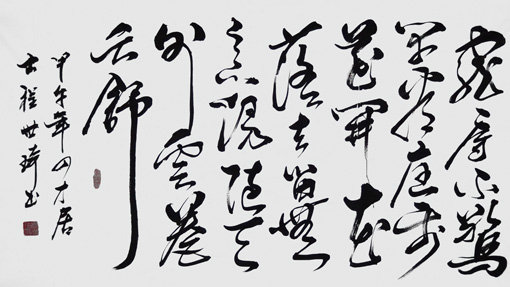 寵辱不驚
閑看庭前
花開花
落去留無
意漫隨天
外雲卷
云舒
甲午年四才居
士程世琦书